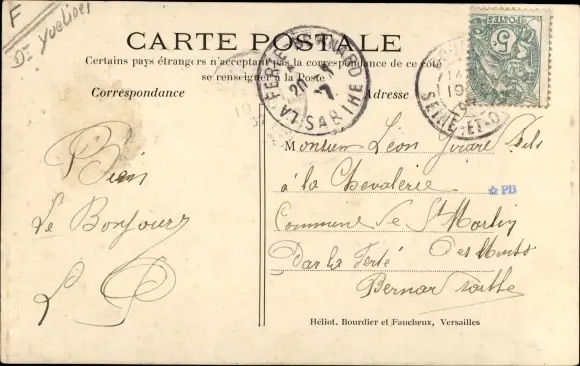 F
Dt Yvelines
CARTE POSTALE
Certains pays étrangers n'acceptant pas la correspondance de ce côté
se renseigner à la Poste
Correspondance
Adresse
LA FERTE-BERNARD
20 -7
SARTHE
SEINE-ET-O
POSTES
5
Bien
Le Bonjour
Monsieur Léon Fils
à la Chevalerie
Commune de St Martin
Par la Ferté Des Monts
Bernar Sarthe
☆ PB
Héliot. Bourdier et Faucheux, Versailles